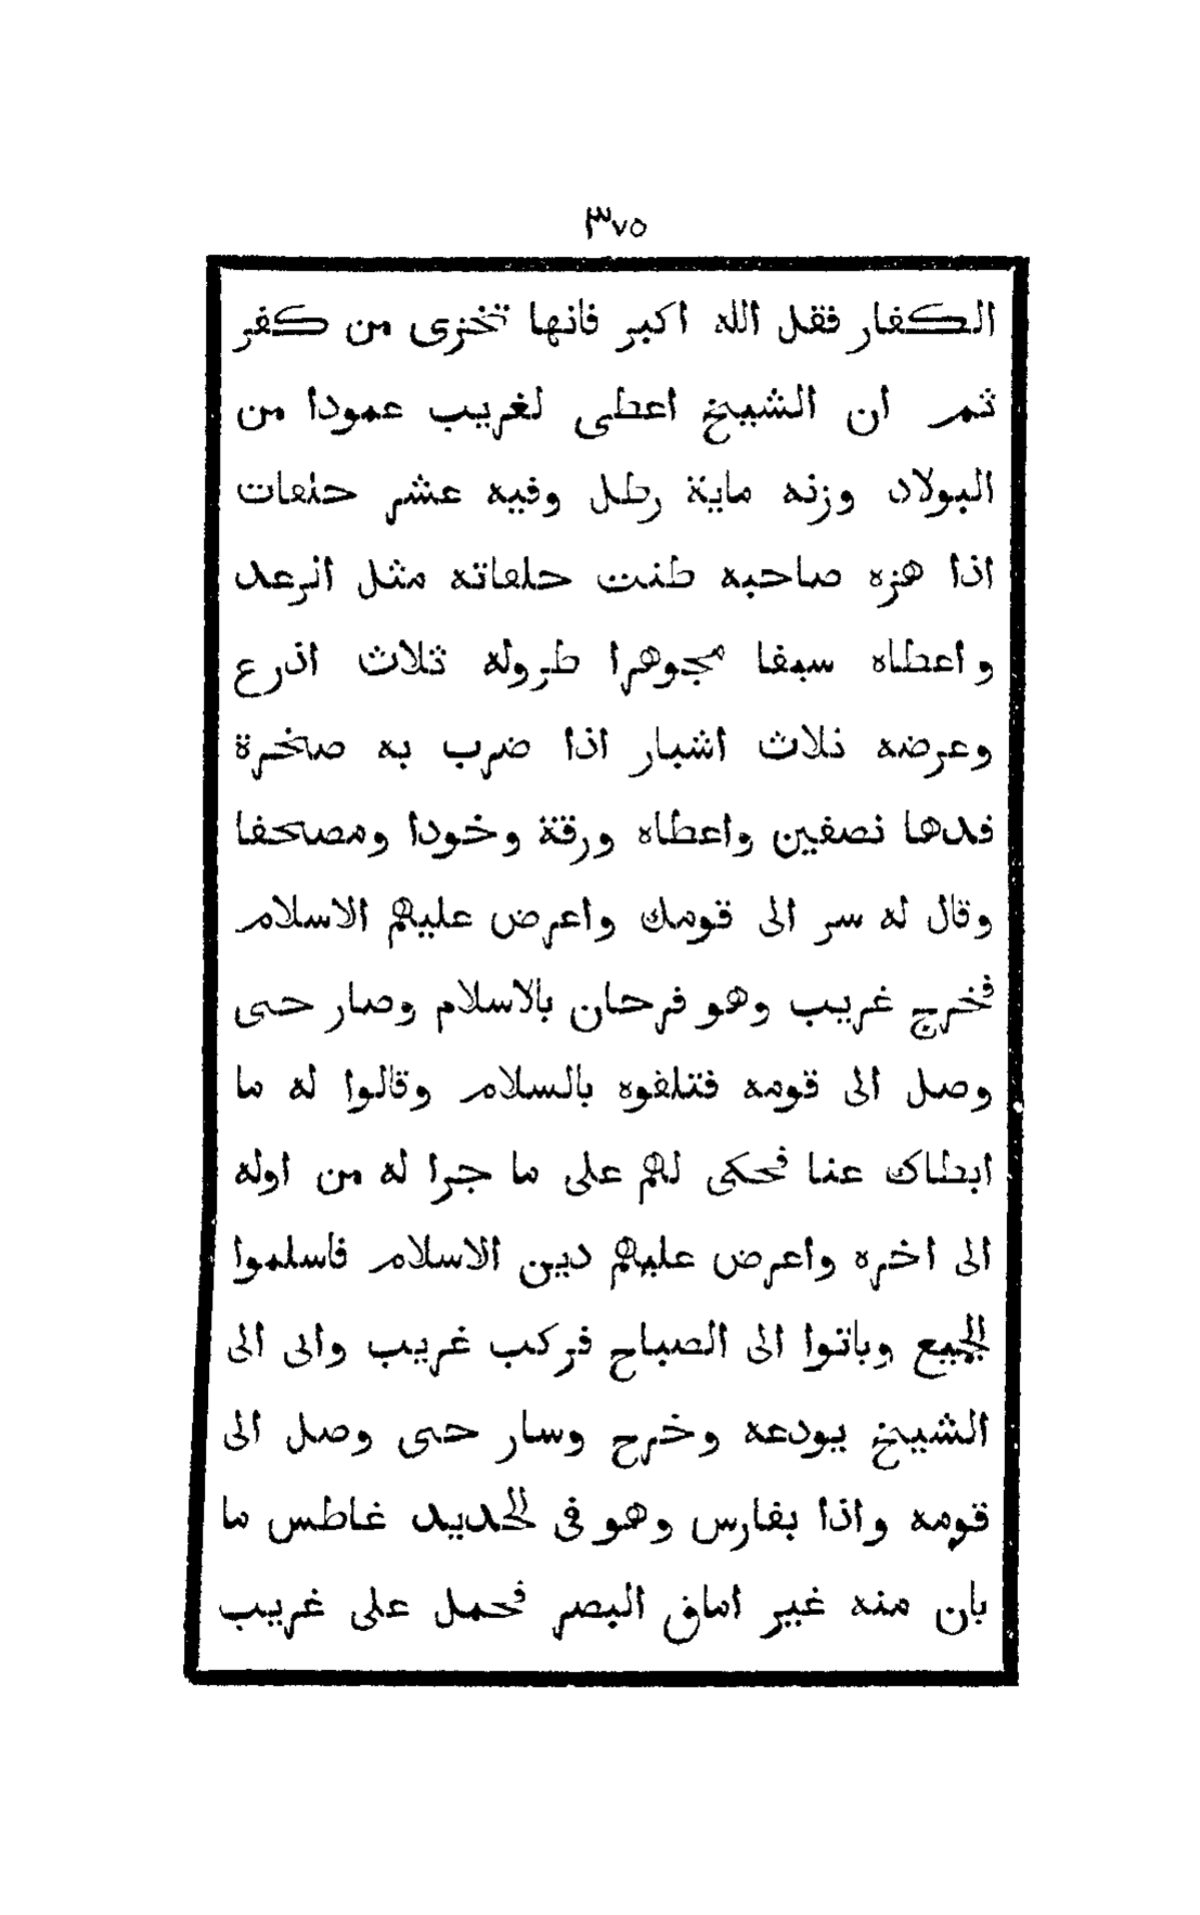 ٣٧٥
الكفار فقل الله اكبر فانها تخزى من كفر
ثم ان الشيخ اعطى لغريب عمودا من
البولاد وزنه ماية رطل وفيه عشر حلقات
اذا هزه صاحبه طنت حلقاته مثل الرعد
واعطاه سيفا مجوهرا طروله ثلاث اذرع
وعرضه ثلاث اشبار اذا ضرب به صخرة
قدها نصفين واعطاه ورقة وخودا ومصحفا
وقال له سر الى قومك واعرض عليهم الاسلام
فخرج غريب وهو فرحان بالاسلام وصار حتى
وصل الى قومه فتلقوه بالسلام وقالوا له ما
ابطاك عنا فحكى لهم على ما جرا له من اوله
الى اخره واعرض عليهم دين الاسلام فاسلموا
الجميع وباتوا الى الصباح فركب غريب واتى الى
الشيخ يودعه وخرج وسار حتى وصل الى
قومه واذا بفارس وهو فى الحديد غاطس ما
بان منه غير اماق البصر فحمل على غريب